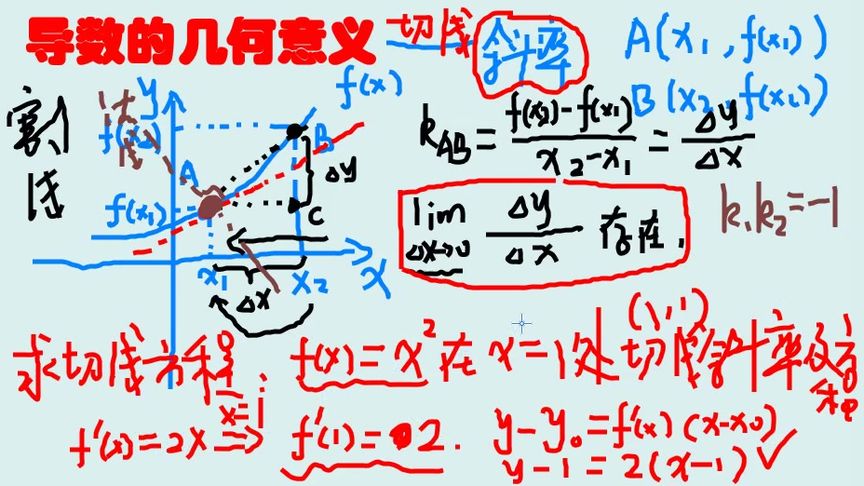 导数的几何意义 切线 斜率
A(x₁,f(x₁))
B(x₂,f(x₂))
割线
法线
y
f(x)
f(x₂)
f(x₁)
A
B
C
Δy
x₁
x₂
x
Δx
k_AB = (f(x₂)-f(x₁))/(x₂-x₁) = Δy/Δx
lim Δx→0 Δy/Δx 存在.
k₁k₂=-1
(1,1)
求切线方程. f(x)=x²在x=1处切线斜率及方程
f'(x)=2x ⇒ x=1 f'(1)=2.
y-y₀=f'(x)(x-x₀)
y-1=2(x-1)✓